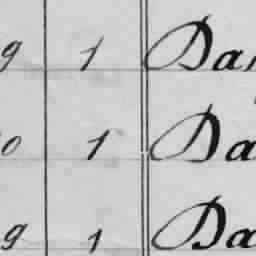 9 1 Da
0 1 Da
9 1 Da